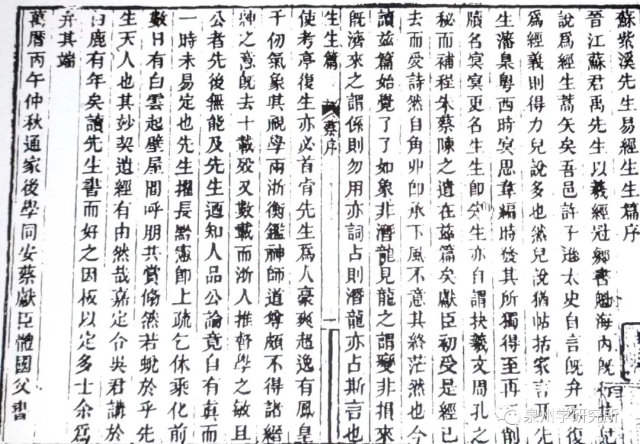 蘇紫溪先生易經生生篇序
晉江蘇君禹先生以羲經冠鄉書魁海內既行其兒
說爲經生蒿矢矣吾邑許子遜太史自言既弁不復
爲經義則得力兒說多也然兒說猶帖括家言耳先
生藩臬粵西時冥思韋編時發其所獨得至再倒
牘名冥冥更名生生卽先生亦自謂抉羲文周孔之
秘而補程朱蔡陳之遺在茲篇矣獻臣初受是經已
去而受詩然自角丱卽承下風不意其終茫然也今
讀茲篇始覺了了如象非潛龍見龍之謂變非損來
既濟來之謂係則勿用亦詞占則潛龍亦占斯言也
生生篇 蔡序 一
使考亭復生亦必首肯先生爲人豪爽超逸有鳳皇
千仞氣象其視學兩浙衡鑑神師道尊頗不得諸縉
紳之意既去十載歿又數載而浙人推督學之敏且
公者先後無能及先生迺知人品公論竟自有眞而
一時未易定也先生擢長黔憲卽上疏乞休乘化前
數日有白雲起壁屋間呼朋共賞翛然若蛻於乎先
生天人也其妙契遺經有由然哉嘉定令吳君講於
白鹿有年矣讀先生書而好之因板以定多士余爲
弁其端
萬曆丙午仲秋通家後學同安蔡獻臣體國父書
泉州学研究所